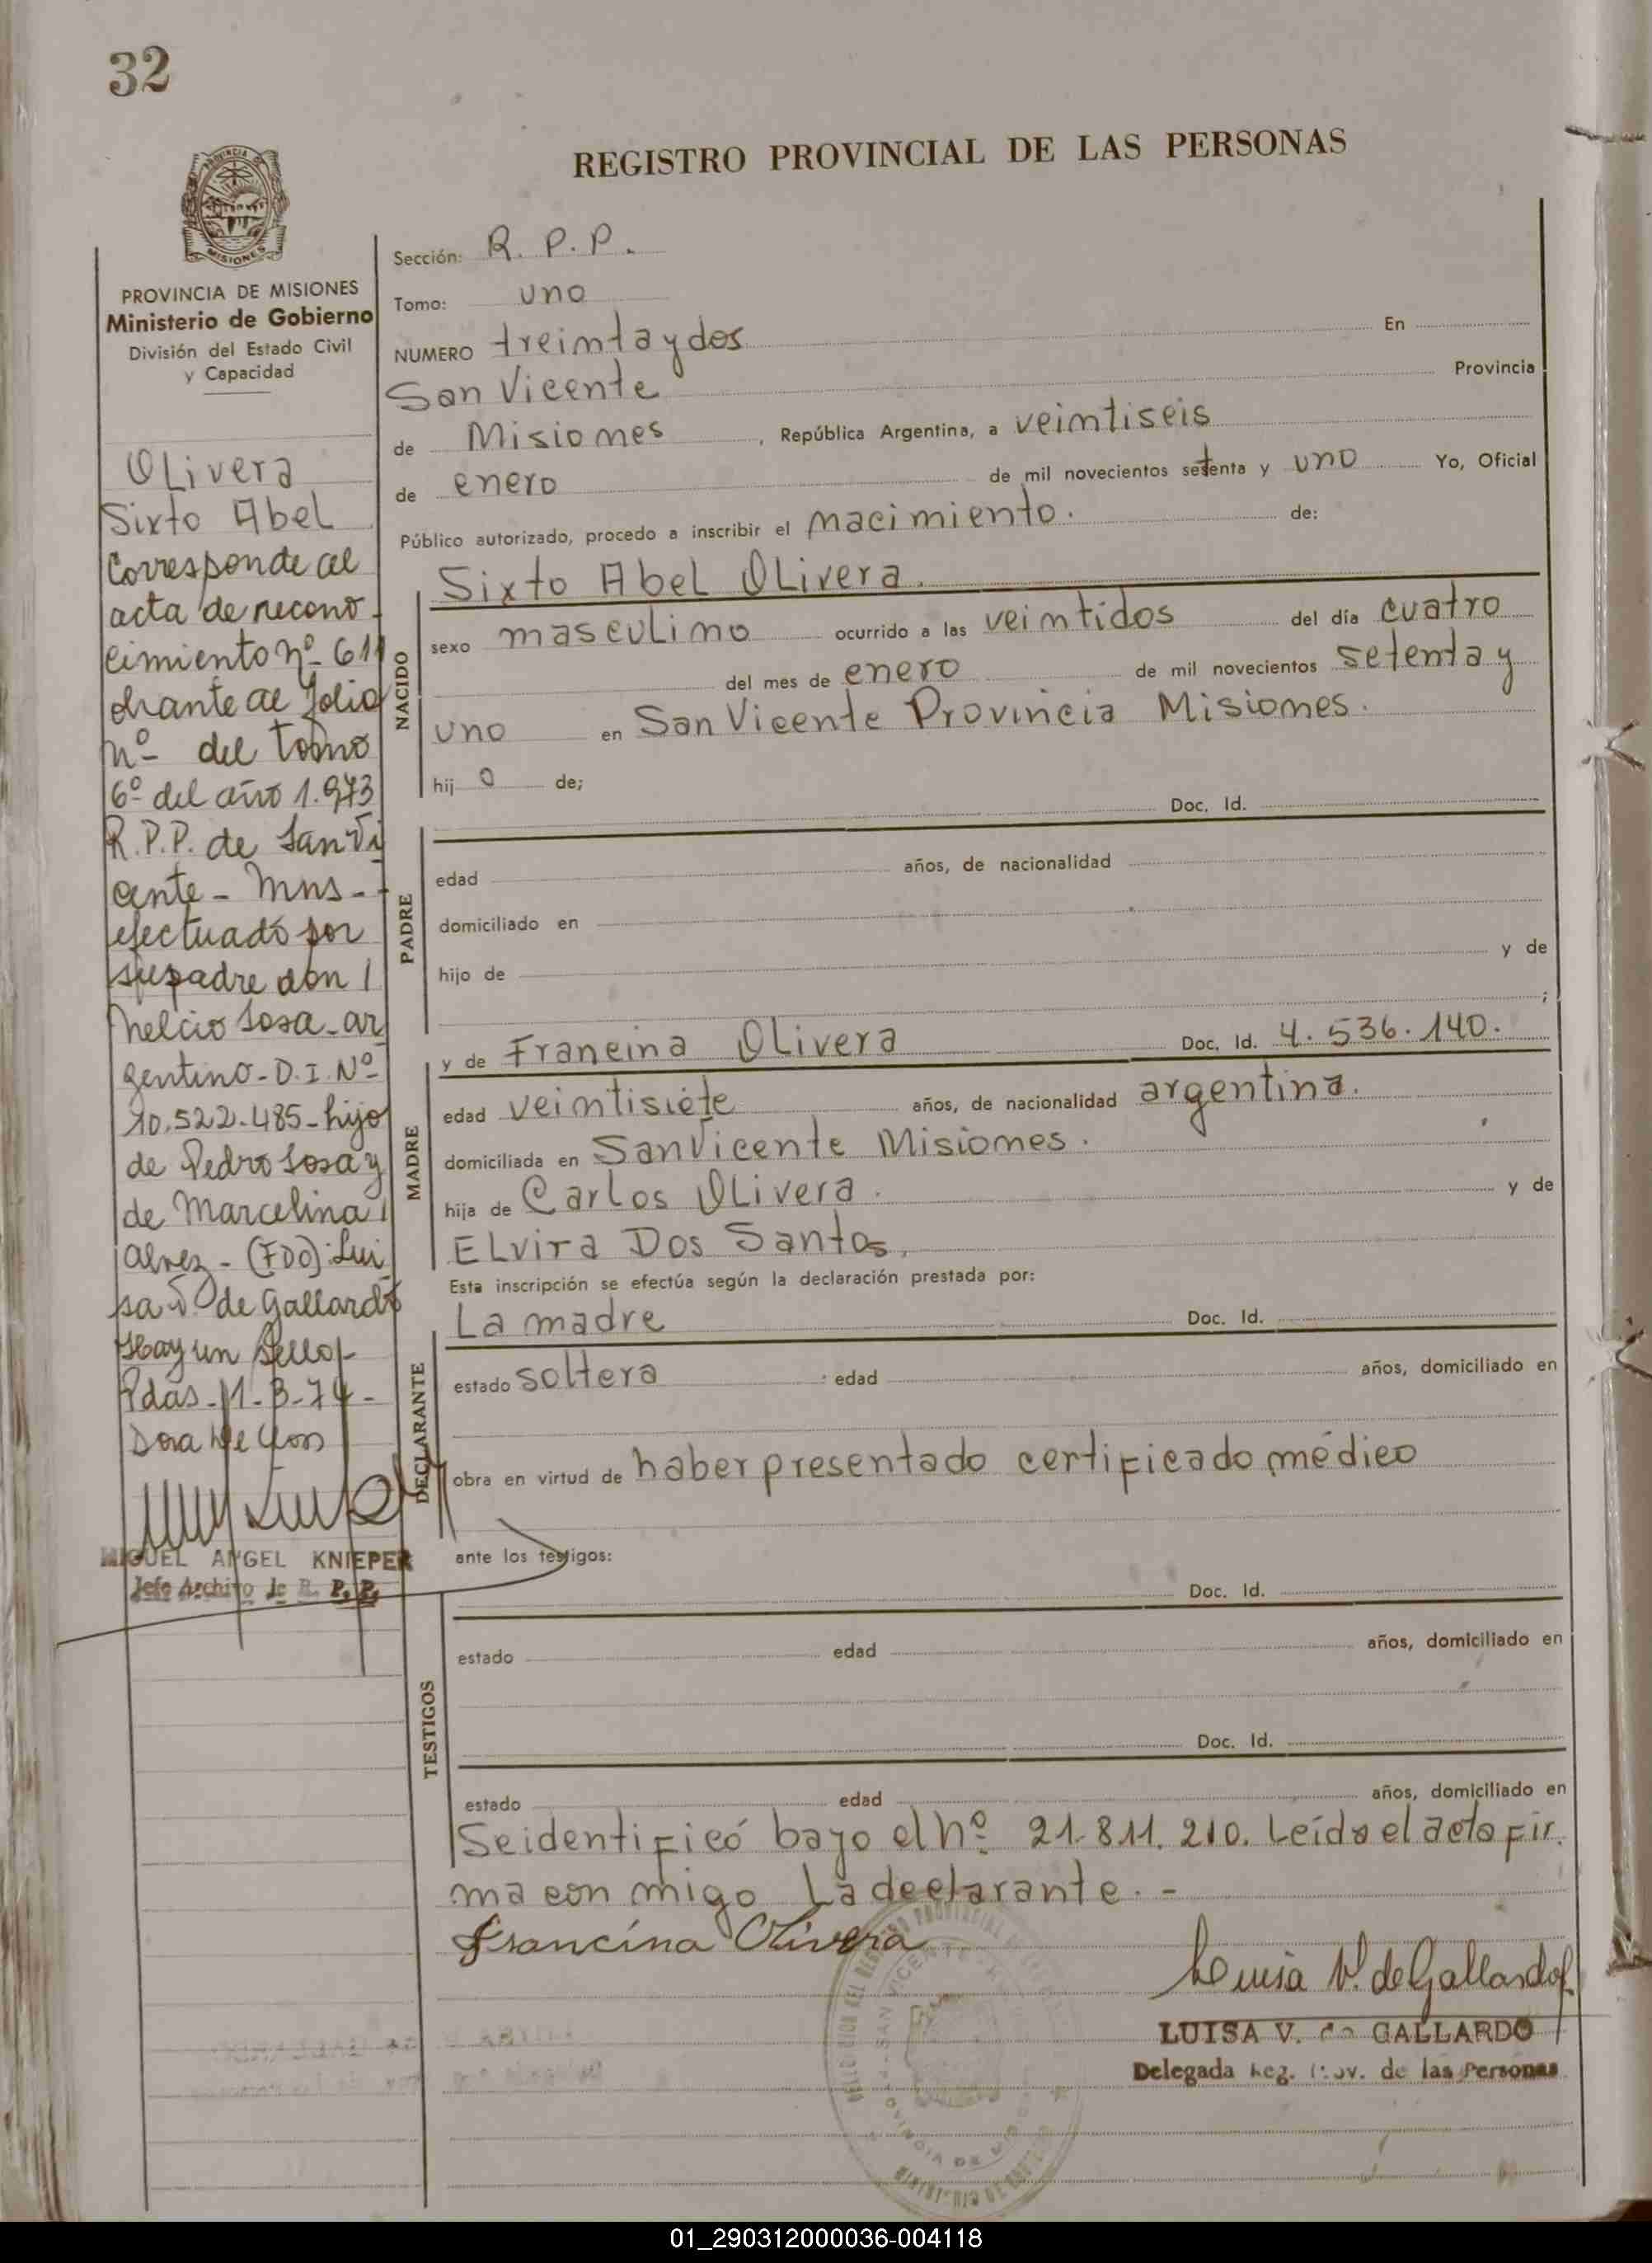 32
REGISTRO PROVINCIAL DE LAS PERSONAS
MISIONES
PROVINCIA DE MISIONES
Ministerio de Gobierno
División del Estado Civil
y Capacidad
Olivera
Sixto Abel
Corresponde al
acta de recono-
cimiento nº 611
obrante al folio
nº- del tomo
6º del año 1.973
R.P.P. de San Vi
cente - Mns -
efectuado por
su padre don
Nelcio Sosa - ar
gentino - D.I. Nº
10.522.485 - hijo
de Pedro Sosa y
de Marcelina
Alvez - (FDO): Lui
sa V. de Gallardo
Hay un sello
Pdas - 11-3-74 -
MIGUEL ANGEL KNIEPER
Jefe Archivo de R. P. P.
Sección: R. P. P.
Tomo: uno
NUMERO treinta y dos En
San Vicente Provincia
de Misiones, República Argentina, a veintiseis
de enero de mil novecientos setenta y uno Yo, Oficial
Público autorizado, procedo a inscribir el nacimiento. de:
NACIDO
Sixto Abel Olivera.
sexo masculino ocurrido a las veintidos del día cuatro
del mes de enero de mil novecientos setenta y
uno en San Vicente Provincia Misiones.
hij o de;
Doc. Id.
PADRE
edad años, de nacionalidad
domiciliado en
hijo de y de
;
MADRE
y de Francina Olivera Doc. Id. 4.536.140.
edad veintisiete años, de nacionalidad argentina.
domiciliada en San Vicente Misiones.
hija de Carlos Olivera. y de
Elvira Dos Santos,
Esta inscripción se efectúa según la declaración prestada por:
DECLARANTE
La madre Doc. Id.
estado soltera edad años, domiciliado en
obra en virtud de haber presentado certificado médico
ante los testigos:
Doc. Id.
TESTIGOS
estado edad años, domiciliado en
Doc. Id.
estado edad años, domiciliado en
Se identificó bajo el nº 21.811.210. Leída el acta fir.
ma con migo La declarante. -
Francina Olivera
Luisa V. de Gallardo
LUISA V. de GALLARDO
Delegada Reg. Prov. de las Personas
01_290312000036-004118